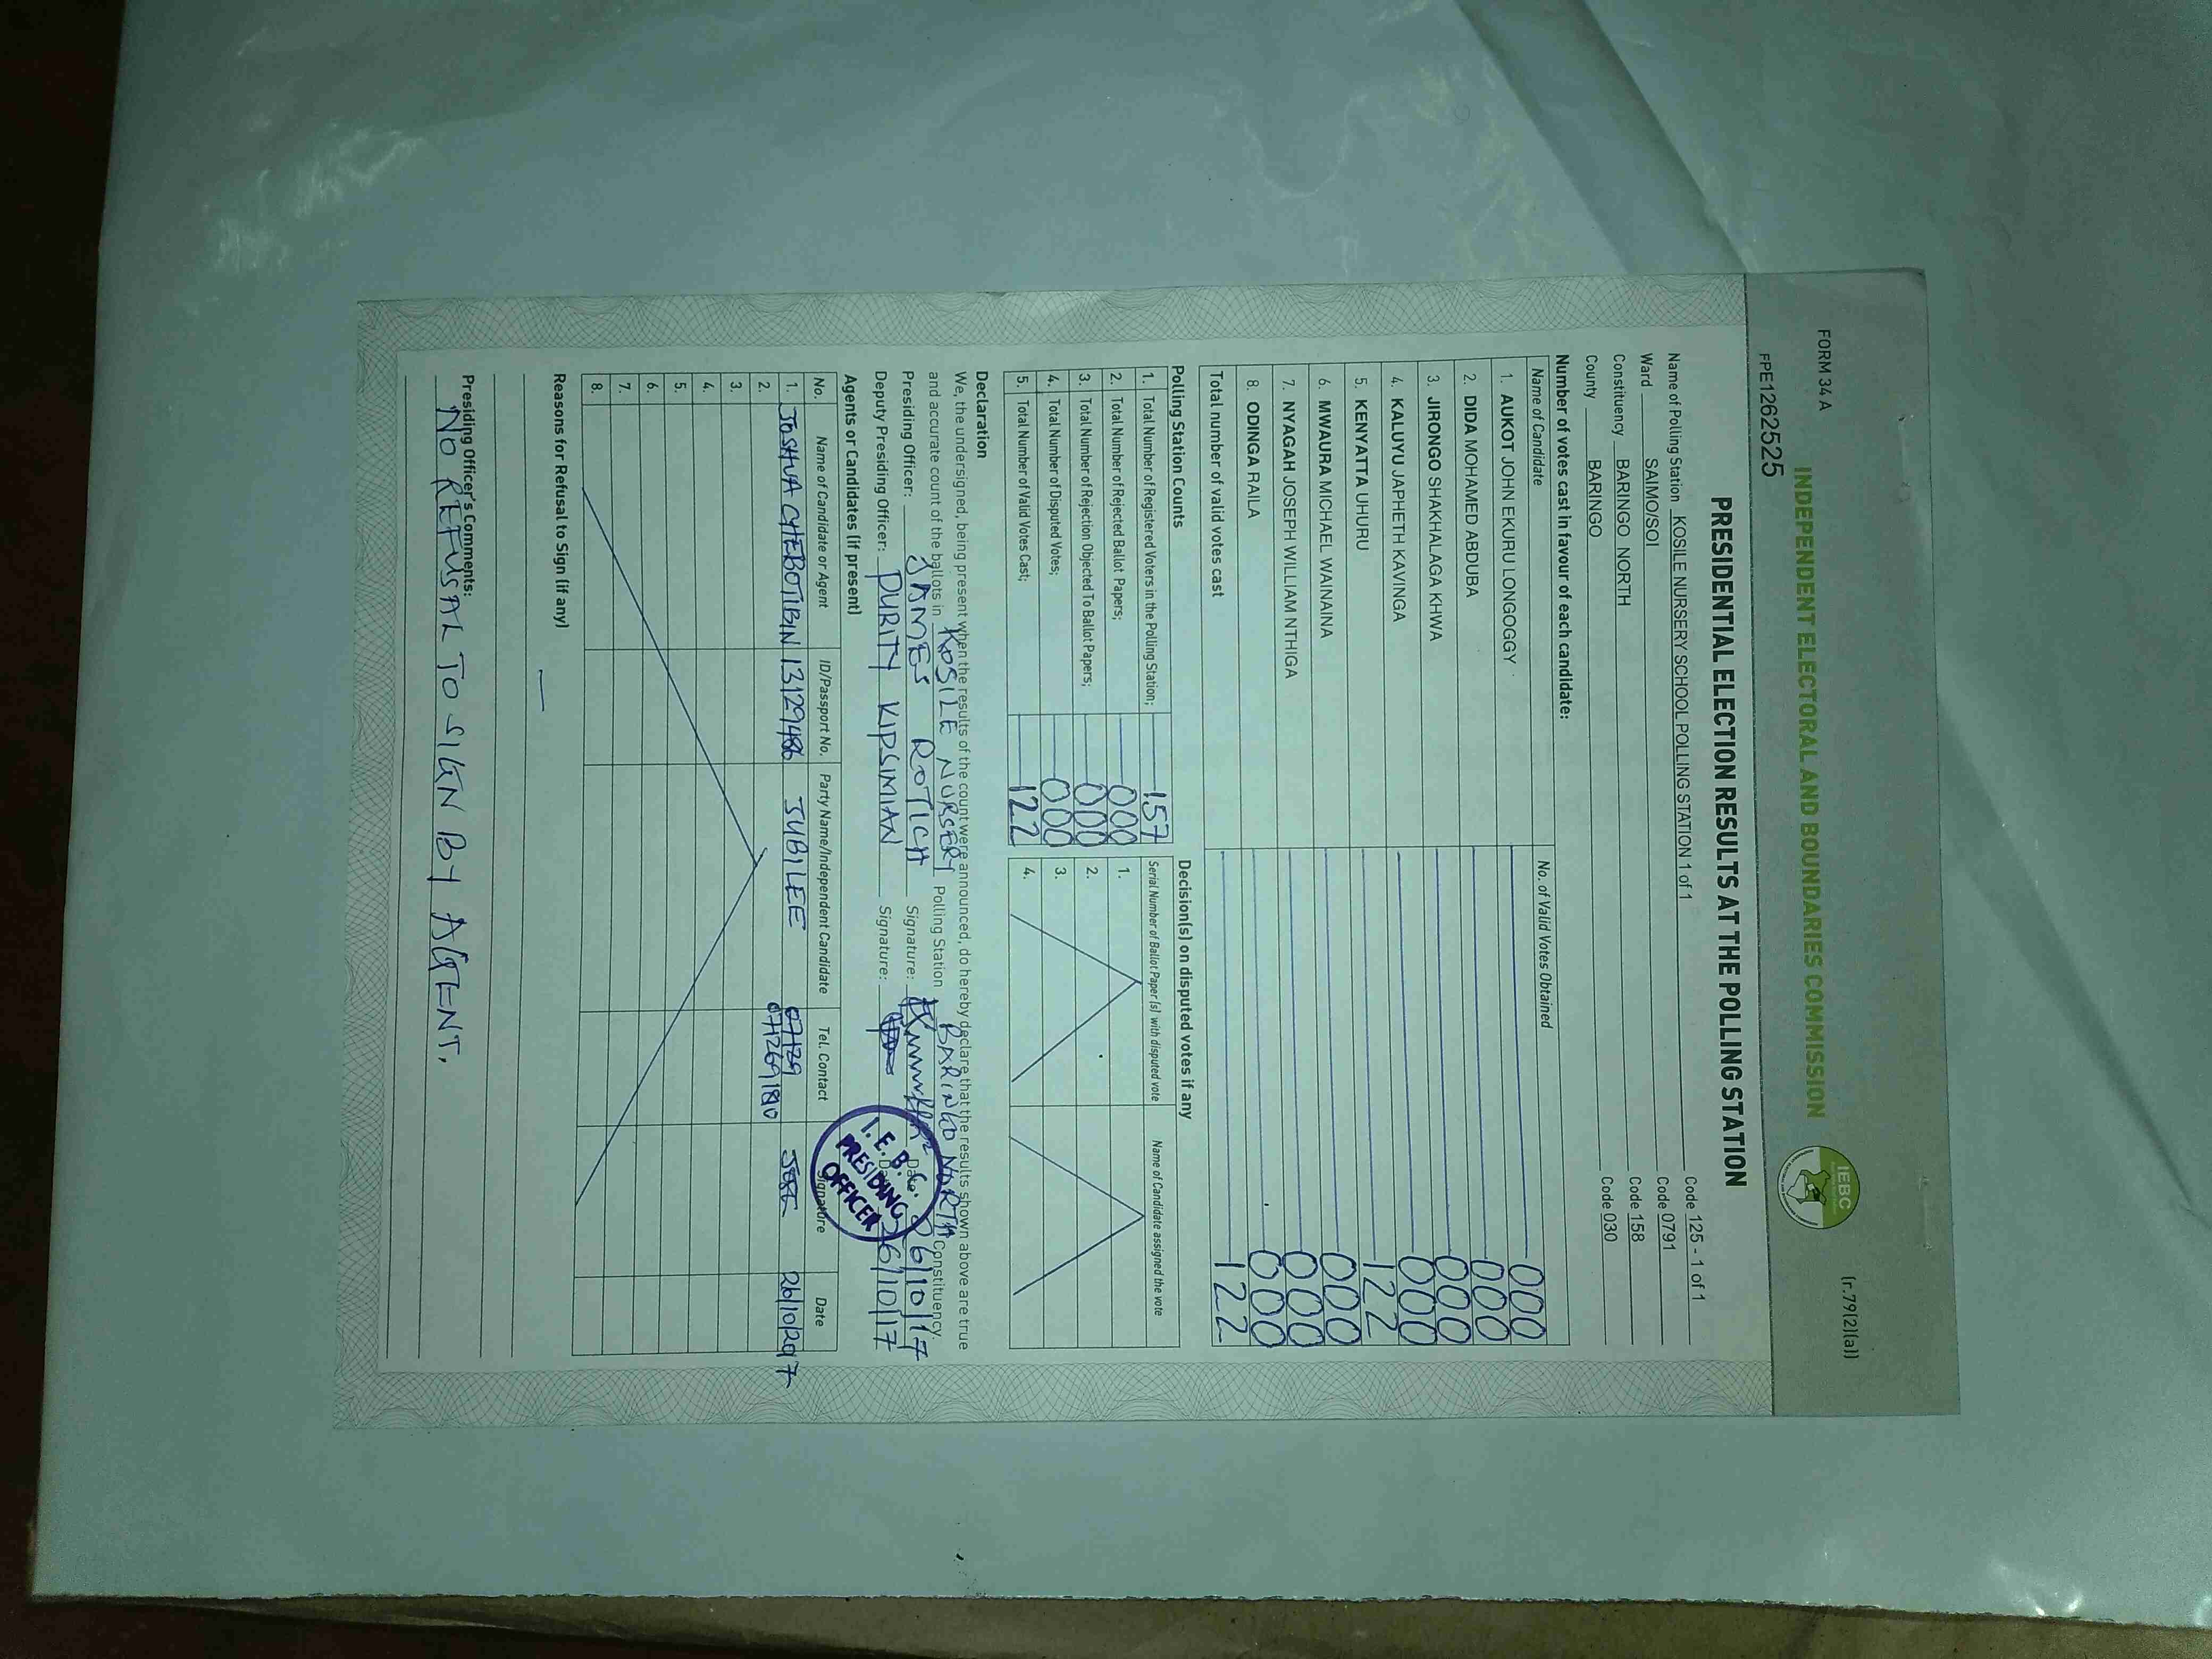 FORM 34 A
(r.79(2)(a))
INDEPENDENT ELECTORAL AND BOUNDARIES COMMISSION
IEBC
FPE1262525
PRESIDENTIAL ELECTION RESULTS AT THE POLLING STATION
Name of Polling Station KOSILE NURSERY SCHOOL POLLING STATION 1 of 1 Code 125 - 1 of 1
Ward SAIMO/SOI Code 0791
Constituency BARINGO NORTH Code 158
County BARINGO Code 030
Number of votes cast in favour of each candidate:
Name of Candidate No. of Valid Votes Obtained
1. AUKOT JOHN EKURU LONGOGGY 000
2. DIDA MOHAMED ABDUBA 000
3. JIRONGO SHAKHALAGA KHWA 000
4. KALUYU JAPHETH KAVINGA 000
5. KENYATTA UHURU 122
6. MWAURA MICHAEL WAINAINA 000
7. NYAGAH JOSEPH WILLIAM NTHIGA 000
8. ODINGA RAILA 000
Total number of valid votes cast 122
Polling Station Counts
1. Total Number of Registered Voters in the Polling Station; 157
2. Total Number of Rejected Ballot Papers; 000
3. Total Number of Rejection Objected To Ballot Papers; 000
4. Total Number of Disputed Votes; 000
5. Total Number of Valid Votes Cast; 122
Decision(s) on disputed votes if any
Serial Number of Ballot Paper (s) with disputed vote Name of Candidate assigned the vote
1.
2.
3.
4.
Declaration
We, the undersigned, being present when the results of the count were announced, do hereby declare that the results shown above are true
and accurate count of the ballots in KOSILE NURSERY Polling Station BARINGO NORTH Constituency.
Presiding Officer: JAMES ROTICH Signature: Date 26/10/17
Deputy Presiding Officer: PURITY KIPSIMIAN Signature: 26/10/17
I. E. B. C.
PRESIDING
OFFICER
Agents or Candidates (if present)
No. Name of Candidate or Agent ID/Passport No. Party Name/Independent Candidate Tel. Contact Signature Date
1. JOSHUA CHEBOTIBIN 13129486 JUBILEE 26/10/2017
2.
3.
4.
5.
6.
7.
8.
Reasons for Refusal to Sign (if any)
Presiding Officer's Comments:
NO REFUSAL TO SIGN BY AGENT.